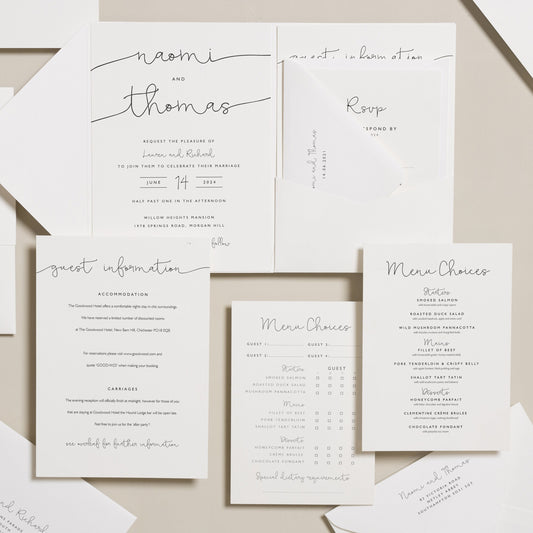 naomi
AND
thomas
REQUEST THE PLEASURE OF
Lauren and Richard
TO JOIN THEM TO CELEBRATE THEIR MARRIAGE
JUNE 14 2024
HALF PAST ONE IN THE AFTERNOON
WILLOW HEIGHTS MANSION
1978 SPRINGS ROAD, MORGAN HILL
follow
guest information
Rsvp
SPOND BY
omi and Thomas
guest information
ACCOMMODATION
The Goodwood Hotel offers a comfortable nights stay in the surroundings.
We have reserved a limited number of discounted rooms
at The Goodwood Hotel, New Barn Hill, Chichester PO18 0QB
For reservations please visit www.goodwood.com and
quote 'GOOD-WOO' when making your booking
CARRIAGES
The evening reception will officially finish at midnight, however for those of you
that are staying at Goodwood Hotel the Hound Lodge bar will be open late.
Feel free to join us for the 'after party'!
see website for further information
Menu Choices
GUEST 1: GUEST 2:
GUEST 3: GUEST 4:
Starters GUEST
SMOKED SALMON
ROASTED DUCK SALAD
MUSHROOM PANNACOTTA
Mains
FILLET OF BEEF
PORK TENDERLOIN
SHALLOT TART TATIN
Desserts
HONEYCOMB PARFAIT
CRÈME BRULEE
CHOCOLATE FONDANT
Special dietary requirements
Menu Choices
Starters
SMOKED SALMON
ROASTED DUCK SALAD
WILD MUSHROOM PANNACOTTA
Mains
FILLET OF BEEF
PORK TENDERLOIN & CRISPY BELLY
SHALLOT TART TATIN
Desserts
HONEYCOMB PARFAIT
CLEMENTINE CRÈME BRULEE
CHOCOLATE FONDANT
Naomi and Thomas
VICTORIA ROAD
NETLEY ABBEY
SOUTHAMPTON